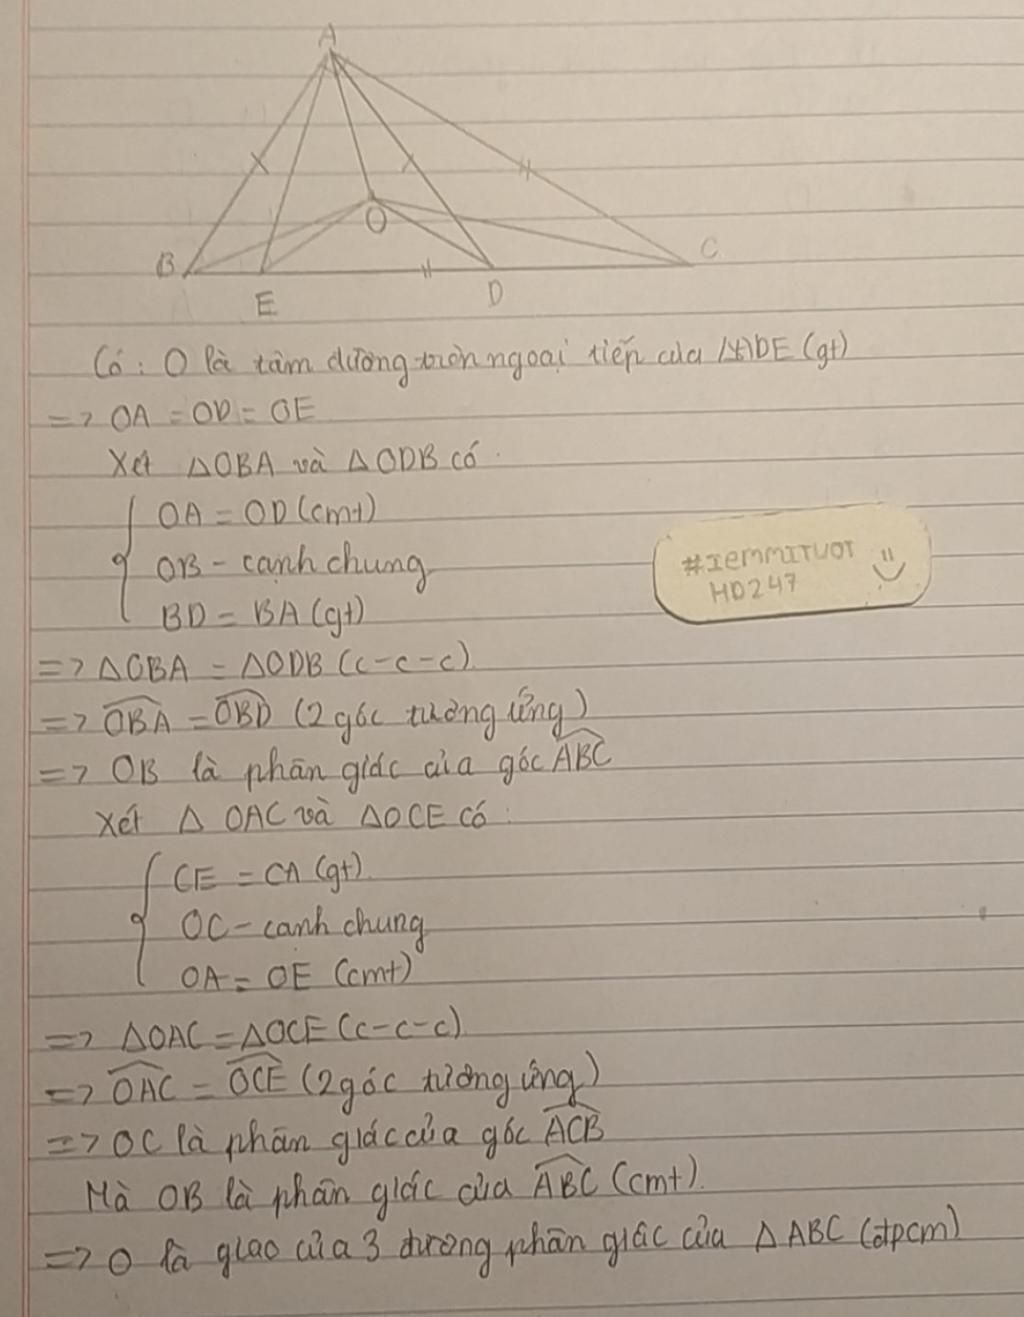 A
O
B
E
D
C
Có: O là tâm đường tròn ngoại tiếp của ADE (gt)
=> OA = OD = OE
Xét ΔOBA và ΔODB có:
OA = OD (cmt)
OB - cạnh chung
BD = BA (gt)
#IEMMITUOT
HD247
=> ΔOBA = ΔODB (c-c-c)
=> OBA = OBD (2 góc tương ứng)
=> OB là phân giác của góc ABC
Xét Δ OAC và ΔOCE có:
CE = CA (gt)
OC - cạnh chung
OA = OE (cmt)
=> ΔOAC = ΔOCE (c-c-c)
=> OAC = OCE (2 góc tương ứng)
=> OC là phân giác của góc ACB
Mà OB là phân giác của ABC (cmt)
=> O là giao của 3 đường phân giác của Δ ABC (đpcm)